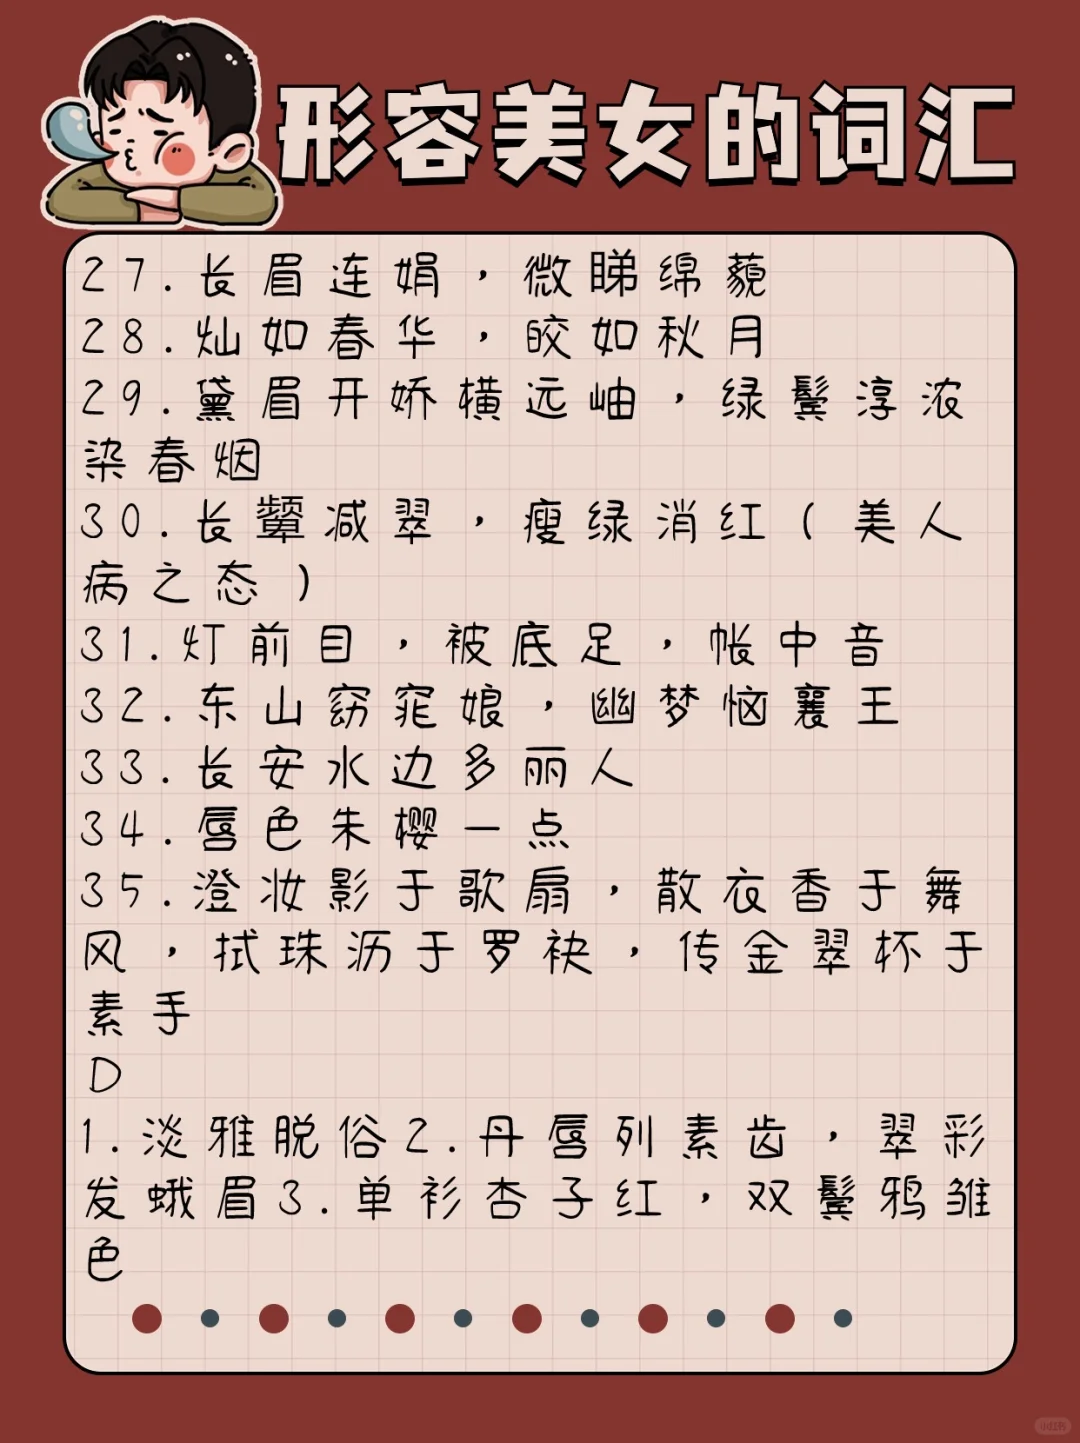 形容美女的词汇
27.长眉连娟，微睇绵藐
28.灿如春华，皎如秋月
29.黛眉开娇横远岫，绿鬓淳浓
染春烟
30.长颦减翠，瘦绿消红(美人
病之态)
31.灯前目，被底足，帐中音
32.东山窈窕娘，幽梦恼襄王
33.长安水边多丽人
34.唇色朱樱一点
35.澄妆影于歌扇，散衣香于舞
风，拭珠沥于罗袂，传金翠杯于
素手
D
1.淡雅脱俗2.丹唇列素齿，翠彩
发蛾眉3.单衫杏子红，双鬓鸦雏
色
小红书